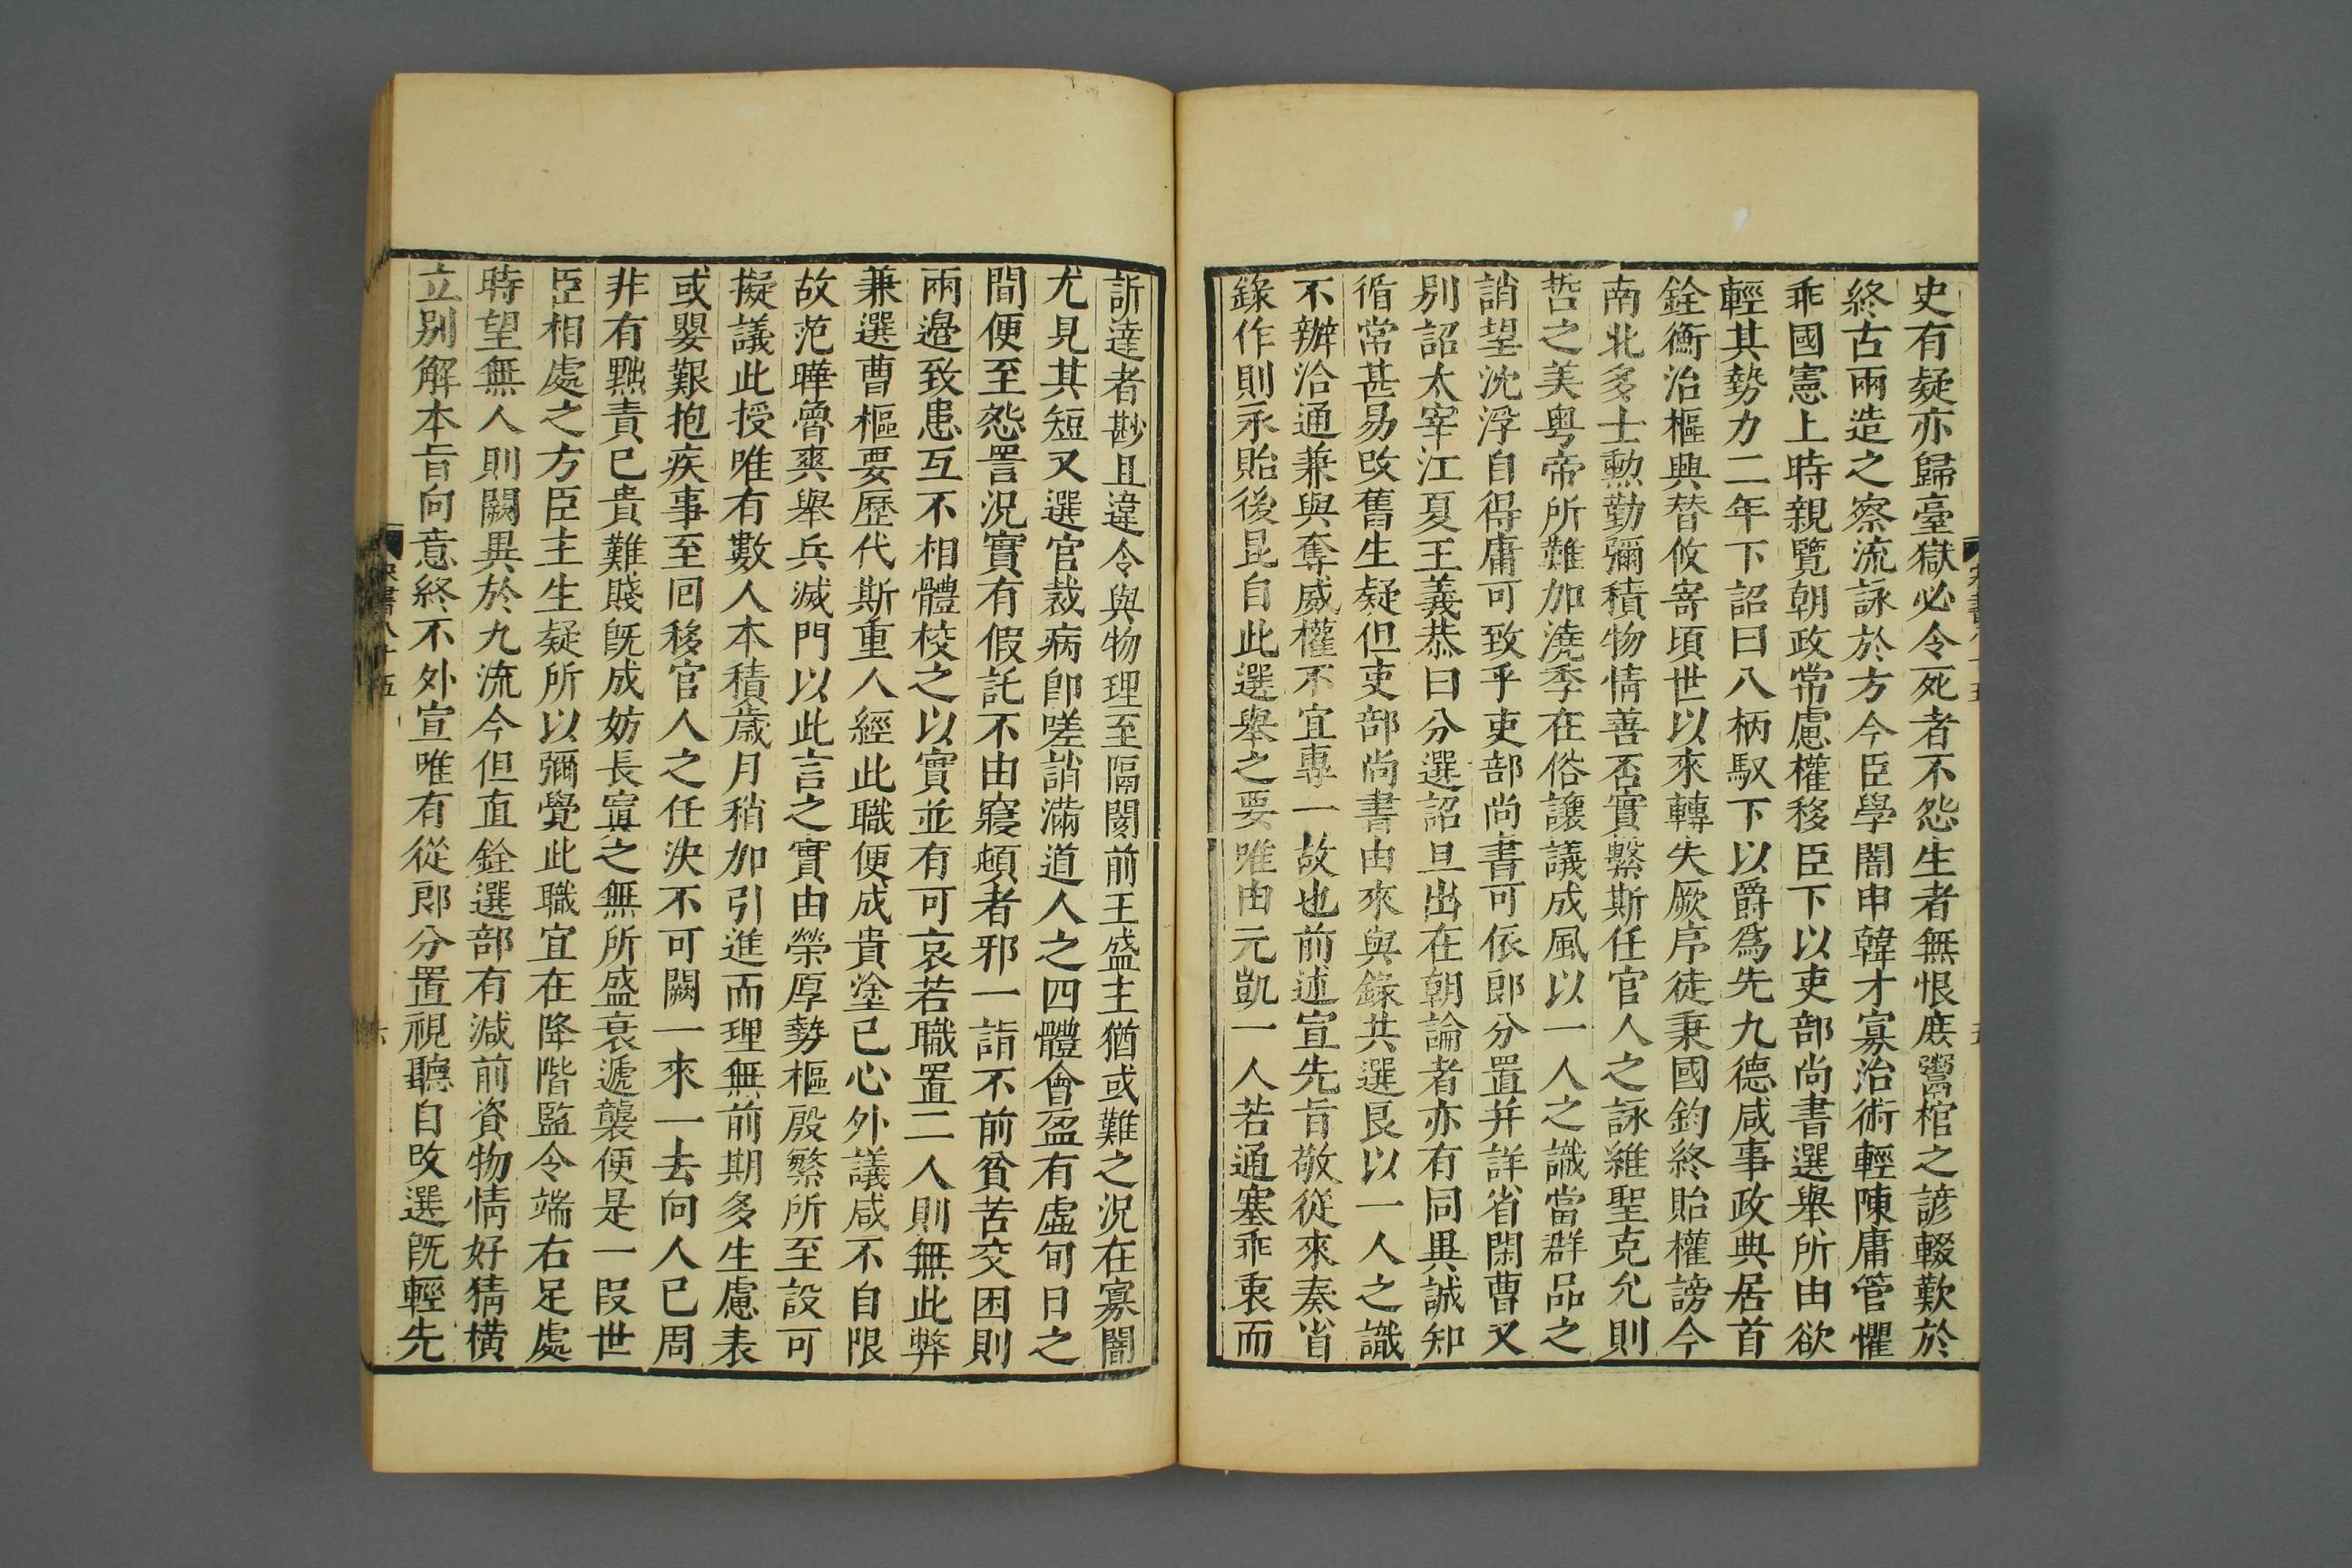 史有疑亦歸臺獄必令死者不怨生者無恨庶鬻棺之諺輟歎於
終古兩造之察流詠於方今臣學闇申韓才寡治術輕陳庸管懼
乖國憲上時親覽朝政常慮權移臣下以吏部尚書選舉所由欲
輕其勢力二年下詔曰八柄馭下以爵爲先九德咸事政典居首
銓衡治樞興替攸寄頃世以來轉失厥序徒秉國鈞終貽權謗今
南北多士勲勤彌積物情善否實繫斯任官人之詠維聖克允則
哲之美粤帝所難加澆季在俗讓議成風以一人之識當群品之
誚望沈浮自得庸可致乎吏部尚書可依郎分置并詳省閑曹又
别詔太宰江夏王義恭曰分選詔旦出在朝論者亦有同異誠知
循常甚易改舊生疑但吏部尚書由來與錄共選良以一人之識
不辦洽通兼與奪威權不宜專一故也前述宣先旨敬從來奏省
錄作則永貽後昆自此選舉之要唯由元凱一人若通塞乖衷而
訴達者尠且違令與物理至隔閡前王盛主猶或難之況在寡闇
尤見其短又選官裁病卽嗟誚滿道人之四體會盈有虛旬日之
間便至怨詈況實有假託不由寢頓者邪一詣不前貧苦交困則
兩邉致患互不相體校之以實並有可哀若職置二人則無此弊
兼選曹樞要歷代斯重人經此職便成貴塗已心外議咸不自限
故范曄魯爽舉兵滅門以此言之實由榮厚勢樞殷繁所至設可
擬議此授唯有數人本積歲月稍加引進而理無前期多生慮表
或嬰艱抱疾事至囘移官人之任决不可闕一來一去向人已周
非有黜責已貴難賤旣成妨長寘之無所盛衰遞襲便是一段世
臣相處之方臣主生疑所以彌覺此職宜在降階監令端右足處
時望無人則闕異於九流今但直銓選部有減前資物情好猜橫
立别解本旨向意終不外宣唯有從郎分置視聽自改選旣輕先